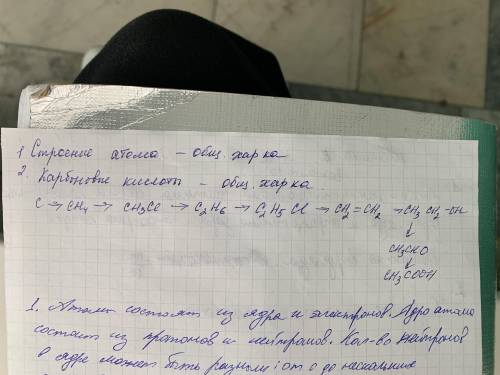 1 Строение атома – общ. хар ка
2. Карбоновые кислоты – общ. хар ка
C → CH4 → CH3Cl → C2H6 → C2H5 Cl → CH2=CH2 → CH3 CH2 –OH
↓
CH3CHO
↓
CH3COOH
1. Атомы состоят из ядра и электронов. Ядро атома
состоит из протонов и нейтронов. Кол-во нейтронов
в ядре может быть разным: от 0 до нескольких